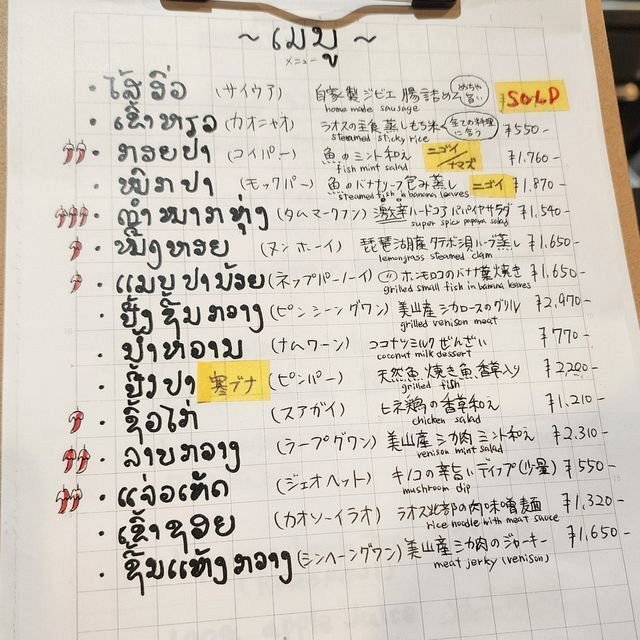 ~ ເມນູ ~
メニュー
・ໄສ້ອົ່ວ (サイウア) 自家製ジビエ腸詰め めちゃ旨い SOLD
home made sausage
・ເຂົ້າໜຽວ (カオニャオ) ラオスの主食 蒸しもち米 全ての料理に合う ¥550-
steamed sticky rice
・ກອຍປາ (コイパー) 魚のミント和え ニゴイ/ナマズ ¥1,760-
fish mint salad
・ໝົກປາ (モックパー) 魚のバナナリーフ包み蒸し ニゴイ ¥1,870-
steamed fish in banana leaves
・ຕຳໝາກຫຸ່ງ (タムマークフン) 激辛ハードコアパパイヤサラダ ¥1,540-
super spicy papaya salad
・ໜຶ້ງຫອຍ (ヌンホーイ) 琵琶湖産タテボシ貝ハーブ蒸し ¥1,650-
lemongrass steamed clam
・ແໜບປານ້ອຍ (ネップパーノーイ) 〃 ホンモロコのバナナ葉焼き ¥1,650-
grilled small fish in banana leaves
・ປີ້ງຊີ້ນກວາງ (ピンシーングワン) 美山産シカロースのグリル ¥2,970-
grilled venison meat
・ນ້ຳຫວານ (ナムワーン) ココナツミルクぜんざい ¥770-
coconut milk dessert
・ປີ້ງປາ 寒ブナ (ピンパー) 天然魚 焼き魚 香草入り ¥2200-
grilled fish
・ຊົ້ອໄກ່ (スアガイ) ヒネ鶏の香草和え ¥1,210-
chicken salad
・ລາບກວາງ (ラープグワン) 美山産シカ肉ミント和え ¥2,310-
venison mint salad
・ແຈ່ວເຫັດ (ジェオヘット) キノコの辛旨いディップ(少量) ¥550-
mushroom dip
・ເຂົ້າຊອຍ (カオソーイラオ) ラオス北部の肉味噌麺 ¥1,320-
rice noodle with meat sauce
・ຊີ້ນແຫ້ງກວາງ (シンヘーングワン) 美山産シカ肉のジャーキー ¥1,650-
meat jerky (venison)